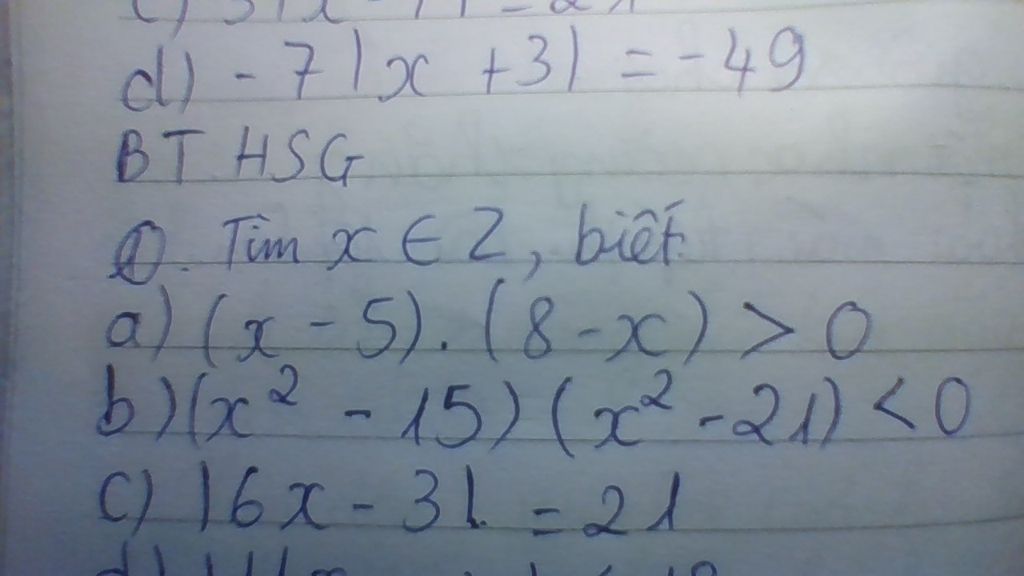 d) - 7 | x + 3 | = - 49
BT HSG
①. Tìm x ∈ Z, biết
a) (x - 5) . (8 - x) > 0
b) (x² - 15) (x² - 21) < 0
c) | 6x - 3 | = 21